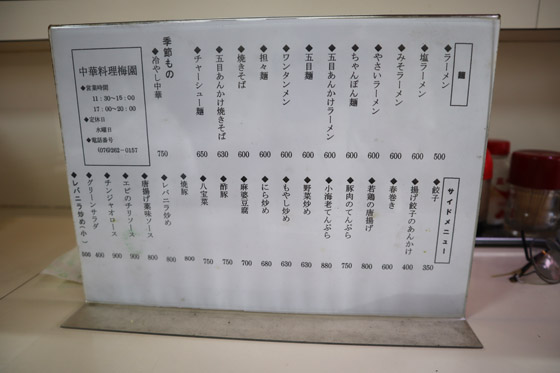 麺
◆ラーメン 500
◆塩ラーメン 600
◆みそラーメン 600
◆やさいラーメン 600
◆ちゃんぽん麺 600
◆五目あんかけラーメン 600
◆五目麺 600
◆ワンタンメン 600
◆担々麺 600
◆焼きそば 600
◆五目あんかけ焼きそば 630
◆チャーシュー麺 650
季節もの
◆冷やし中華 750
中華料理梅園
◆営業時間
11:30～15:00
17:00～20:00
◆定休日
水曜日
◆電話番号
(076)262-0157
サイドメニュー
◆餃子 350
◆揚げ餃子のあんかけ 400
◆春巻き 600
◆若鶏の唐揚げ 800
◆豚肉のてんぷら 750
◆小海老てんぷら 880
◆野菜炒め 630
◆もやし炒め 630
◆にら炒め 680
◆麻婆豆腐 700
◆酢豚 750
◆八宝菜 750
◆焼豚 800
◆レバニラ炒め 800
◆唐揚げ薬味ソース 800
◆エビのチリソース 900
◆チンジャオロース 900
◆グリーンサラダ 400
◆レバニラ炒め(小)